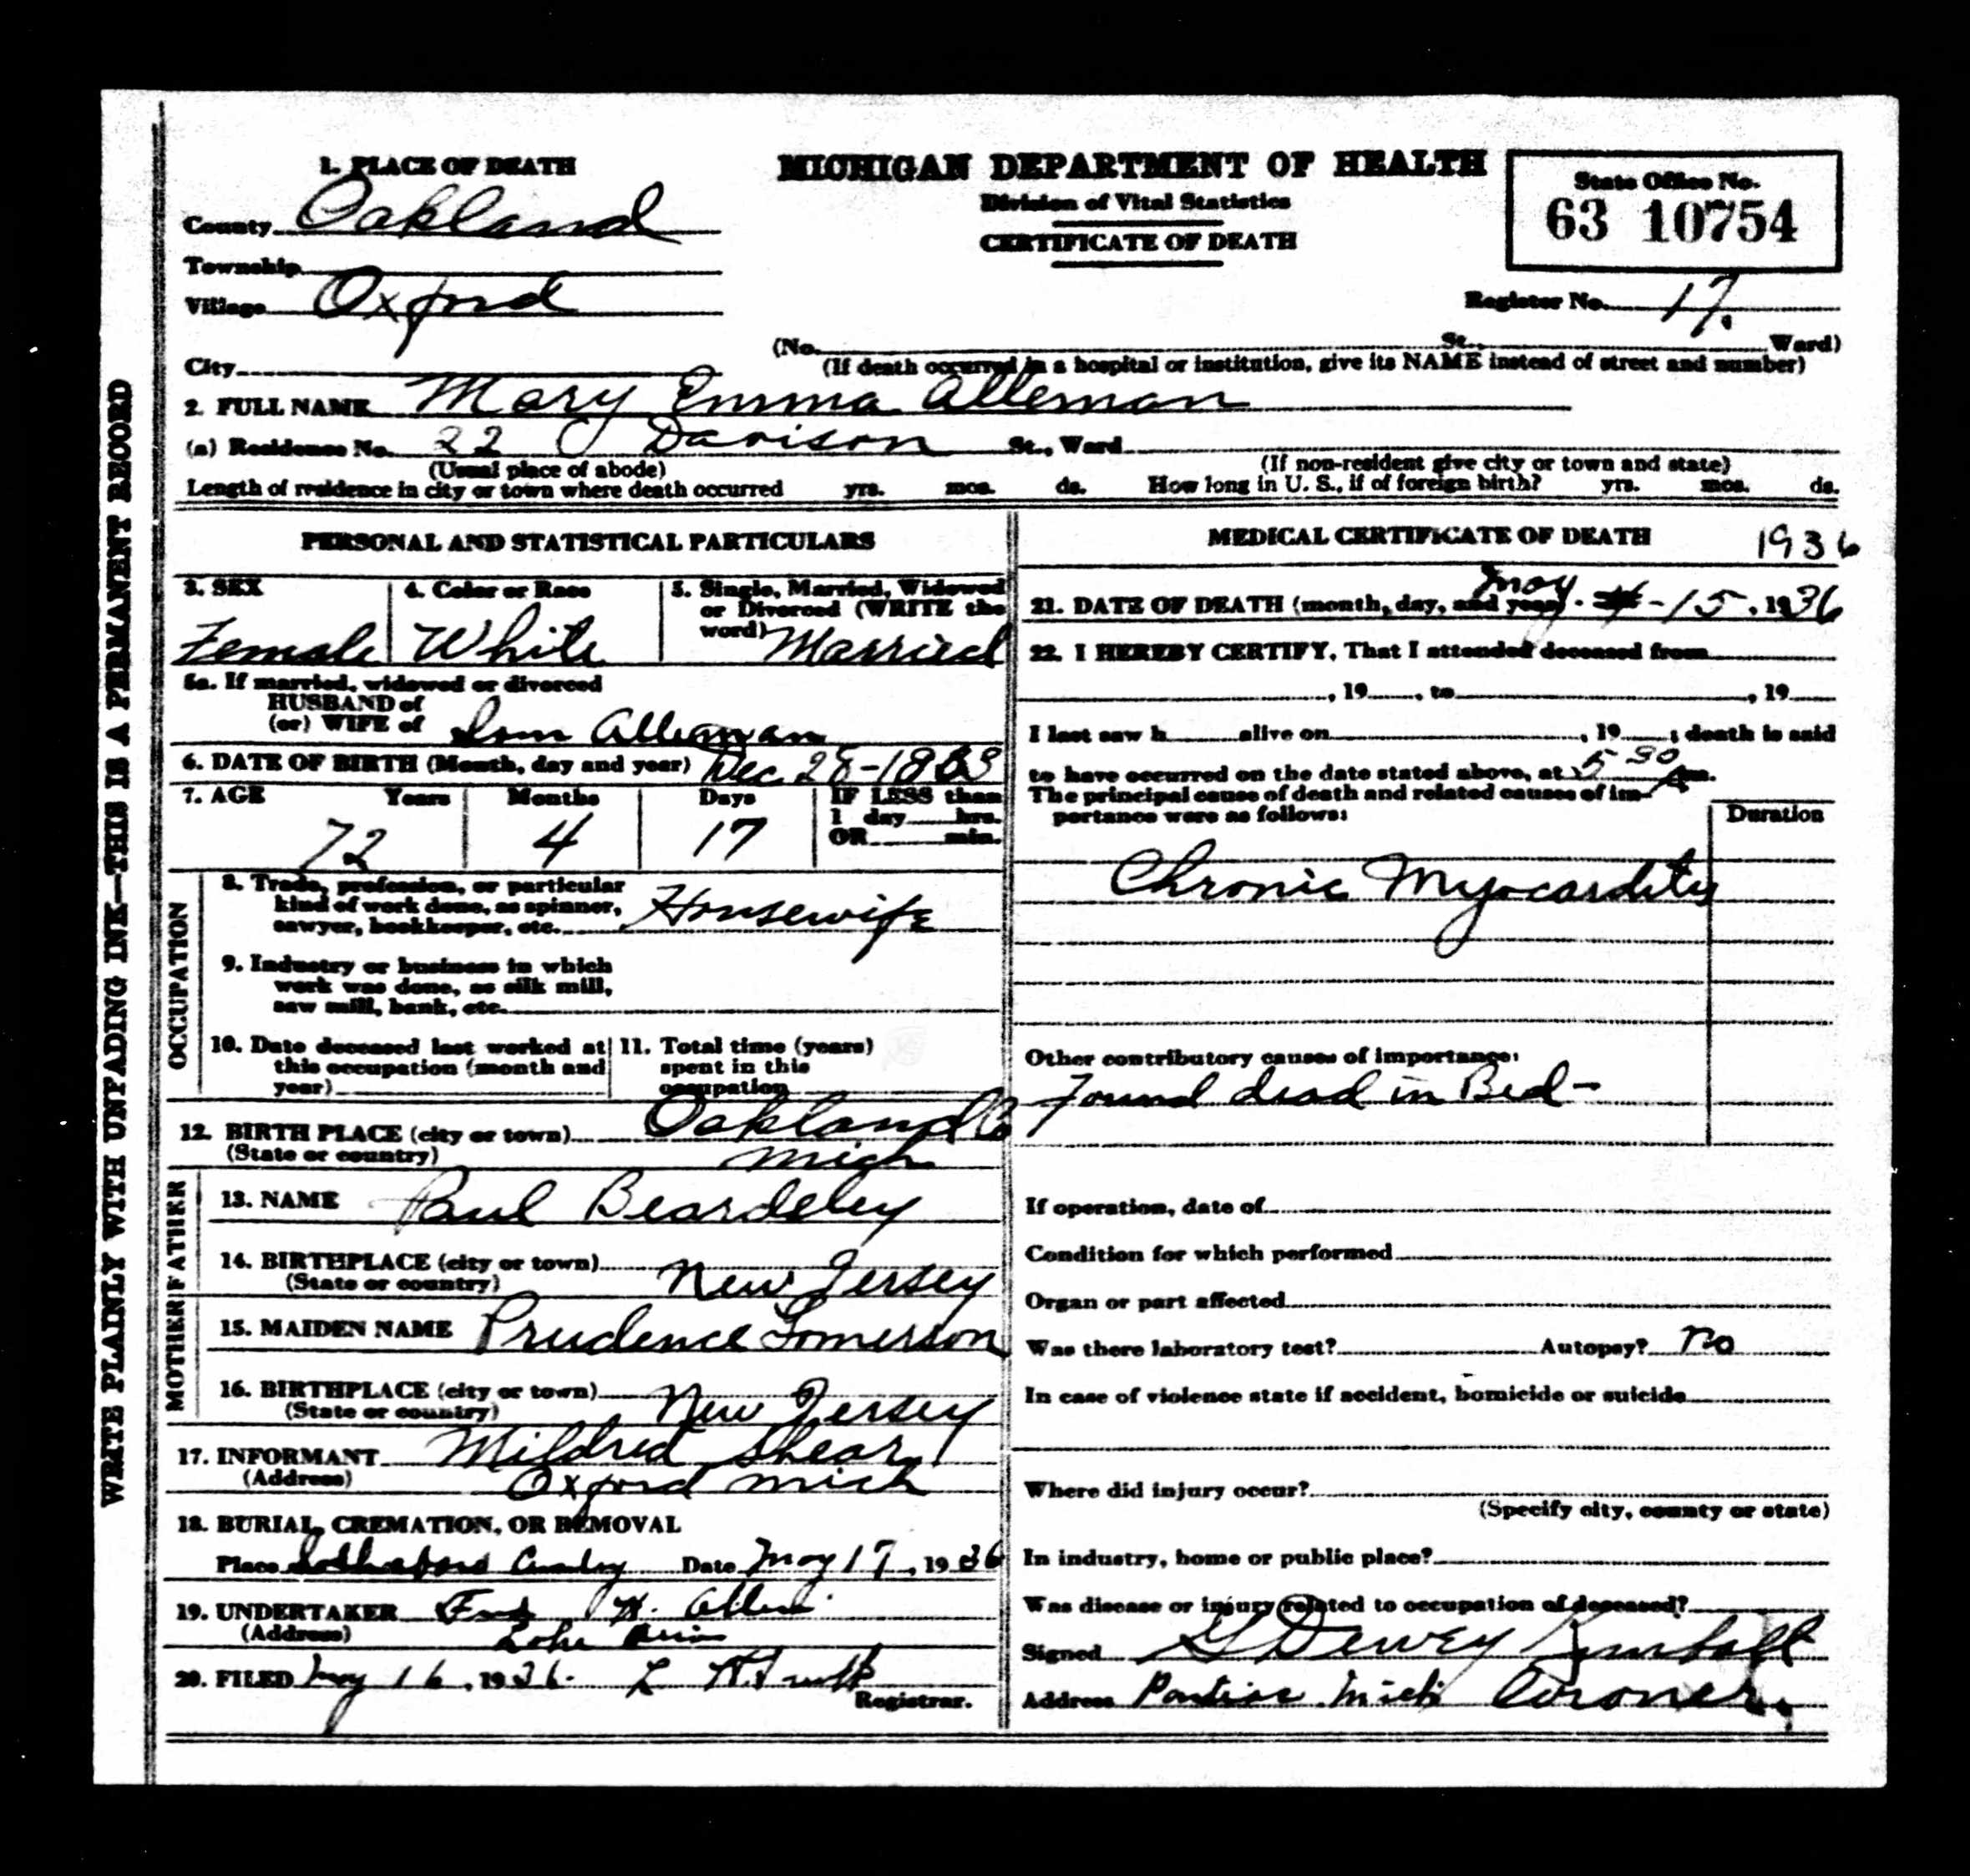 WRITE PLAINLY WITH UNFADING INK—THIS IS A PERMANENT RECORD
MICHIGAN DEPARTMENT OF HEALTH
Division of Vital Statistics
CERTIFICATE OF DEATH
State Office No.
63 10754
Register No. 17.
1. PLACE OF DEATH
County Oakland
Township
Village Oxford
City
(No. St., Ward)
(If death occurred in a hospital or institution, give its NAME instead of street and number)
2. FULL NAME Mary Emma Alleman
(a) Residence No. 22 Davison St., Ward
(Usual place of abode) (If non-resident give city or town and state)
Length of residence in city or town where death occurred yrs. mos. ds. How long in U. S., if of foreign birth? yrs. mos. ds.
PERSONAL AND STATISTICAL PARTICULARS
3. SEX
Female
4. Color or Race
White
5. Single, Married, Widowed
or Divorced (WRITE the
word) Married
5a. If married, widowed or divorced
HUSBAND of
(or) WIFE of Alleman
6. DATE OF BIRTH (Month, day and year) Dec 28-1863
7. AGE Years Months Days IF LESS than
1 day hrs.
OR min.
72 4 17
OCCUPATION
8. Trade, profession, or particular
kind of work done, as spinner,
sawyer, bookkeeper, etc. Housewife
9. Industry or business in which
work was done, as silk mill,
saw mill, bank, etc.
10. Date deceased last worked at
this occupation (month and
year)
11. Total time (years)
spent in this
occupation
12. BIRTH PLACE (city or town) Oakland Co
(State or country) Mich
FATHER
13. NAME Paul Beardsley
14. BIRTHPLACE (city or town) New Jersey
(State or country)
MOTHER
15. MAIDEN NAME Prudence Tomerson
16. BIRTHPLACE (city or town) New Jersey
(State or country)
17. INFORMANT Mildred Shear
(Address) Oxford Mich
18. BURIAL, CREMATION, OR REMOVAL
Place Date May 17, 1936
19. UNDERTAKER H. Allen
(Address) Lake Orion
20. FILED May 16, 1936. L
Registrar.
MEDICAL CERTIFICATE OF DEATH 1936
21. DATE OF DEATH (month, day, and year) May - 15, 1936
22. I HEREBY CERTIFY, That I attended deceased from
, 19 , to , 19
I last saw h alive on , 19 ; death is said
to have occurred on the date stated above, at 5 30 A m.
The principal cause of death and related causes of im-
portance were as follows:
Duration
Chronic Myocarditis
Other contributory causes of importance:
Found dead in Bed -
If operation, date of
Condition for which performed
Organ or part affected
Was there laboratory test? Autopsy? no
In case of violence state if accident, homicide or suicide
Where did injury occur?
(Specify city, county or state)
In industry, home or public place?
Was disease or injury related to occupation of deceased?
Signed G Dewey Kimball
Address Pontiac Mich Coroner.